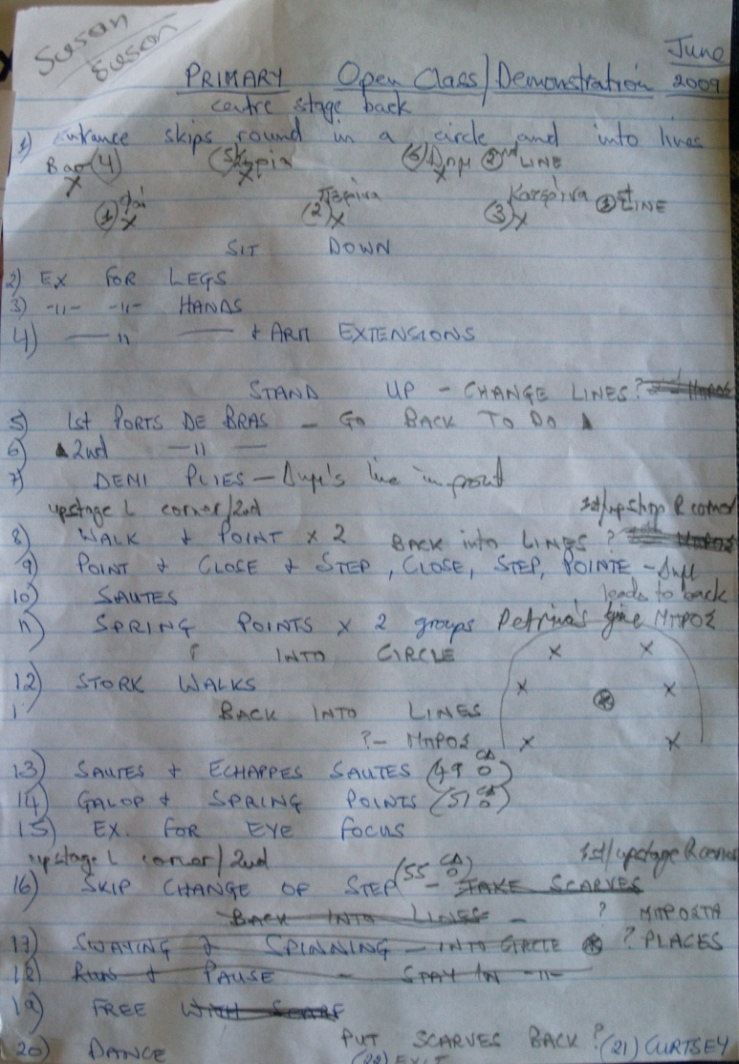 Susan
Susan
June
PRIMARY Open Class/Demonstration 2009
centre stage back
1) Entrance skips round in a circle and into lines
Βασ (4) (5) (6) Δημ 2nd LINE
x x x
(1) (2) (3) Κατερίνα 1st LINE
x x x
SIT DOWN
2) EX FOR LEGS
3) -11- -11- HANDS
4) — 11 — + ARM EXTENSIONS
STAND UP - CHANGE LINES?
5) 1st PORTS DE BRAS - GO BACK TO DO
6) 2nd — 11 —
7) DEMI PLIES - line in front
upstage L corner/2nd 1st/upstage R corner
8) WALK & POINT x 2 BACK into LINES ?
9) POINT & CLOSE & STEP, CLOSE, STEP, POINTE -
leads to back
10) SAUTES
11) SPRING POINTS x 2 groups Petrina's line ΜΠΡΟΣ
? INTO CIRCLE
12) STORK WALKS
BACK INTO LINES
?- ΜΠΡΟΣ
13) SAUTES & ECHAPPES SAUTES (49 CD)
14) GALOP & SPRING POINTS (51 CD)
15) EX. FOR EYE FOCUS
upstage L corner/2nd 1st/upstage R corner
16) SKIP CHANGE OF STEP (55 CD) - TAKE SCARVES
BACK INTO LINES - ? ΜΠΡΟΣΤΑ
17) SWAYING & SPINNING - INTO CIRCLE ? PLACES
18) RUN & PAUSE - STAY IN -11-
19) FREE WITH SCARF
PUT SCARVES BACK? (21) CURTSEY
20) DANCE (22) EXIT